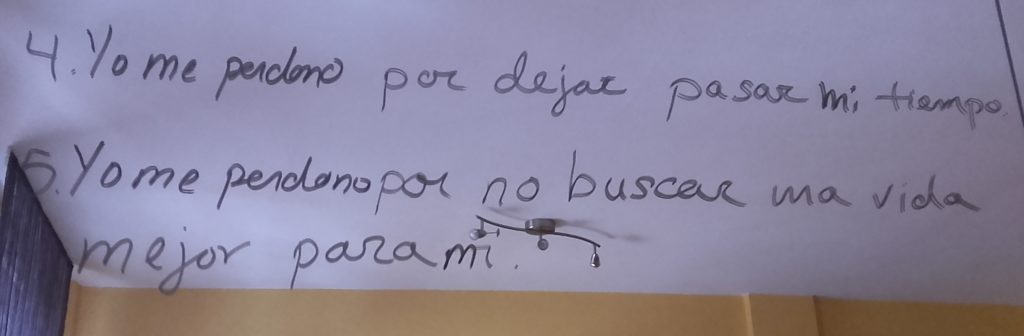 4. Yo me perdono por dejar pasar mi tiempo.
5. Yo me perdono por no buscar una vida
mejor para mi.